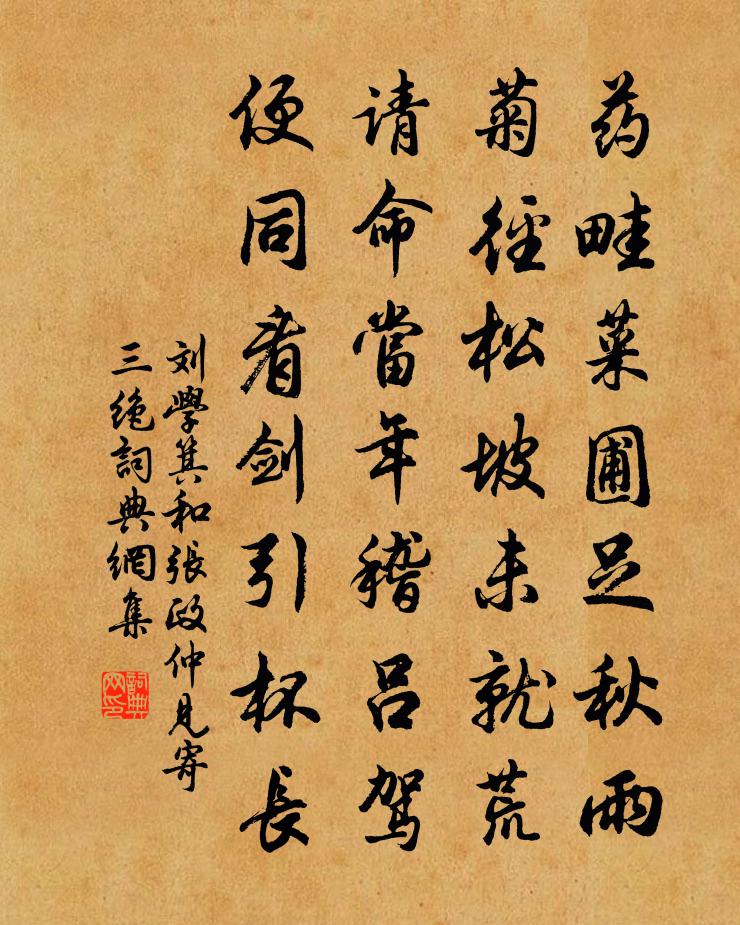 药畦菜圃足秋雨
菊径松坡未就荒
请命當年稽吕驾
便同看剑引杯長
刘學箕和張政仲見寄
三绝詞典網集
詞典网印